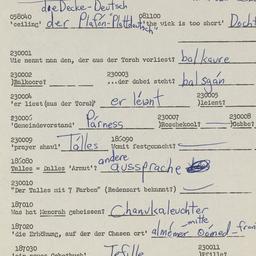 die Decke-Deutsch
058040 081100
'ceiling' der Plafon-Plattdeutsch 'the wick is too short' Docht
230001
Wie nennt man den, der aus der Torah vorliest? balkaure
230002 230003
)Balkoore? ...der dabei steht? balsgan
230004 230005
'er liest (aus der Torah)' er leient )leient?
230006 230007 230008
'Gemeindevorstand' Parness )Roschekool? )Gabbe?
230009 186090
'prayer shawl' Talles Womit festgemacht?
186080 andere
Talles = Dalles 'Armut'? aussprache
230010
"Der Talles mit 7 Farben" (Redensart bekannt?)
187010
Was hat Menorah geheissen? Chanukaleuchter
187020 mitte
'die Erhöhung, auf der der Chasen ort' almemer Oomed-fron
187030 230011
Tefille